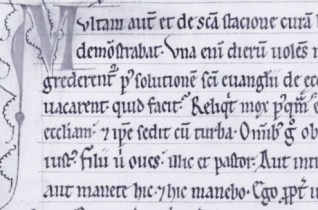 Multam aut̄ et de sc̄a stacione curā
demōstrabat. Vna eni dierū uolēs
grederent᷑ p̄ solutionē sc̄i euanglii de ec
uacarent. quid facit. Reliq̄t mox
eccl̄iam. ⁊ ip̄e sedit cū turba. Om̄ib; ḡ ob
iust᷑. filii ū oues. illic et pastor. Aut int
aut manete hic. ⁊ hic manebo. Ego